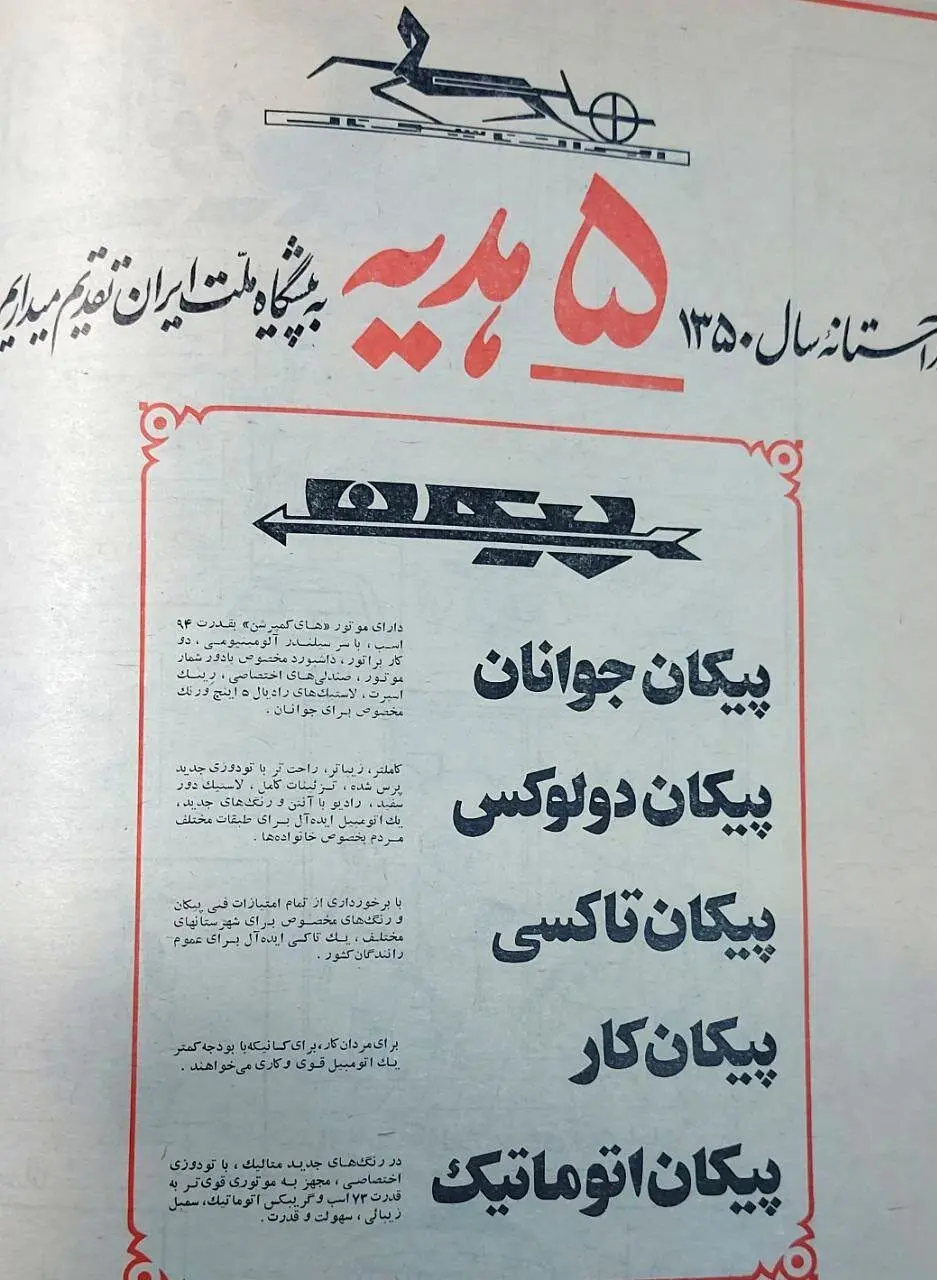 ایران ناسیونال
در آستانهٔ سال ۱۳۵۰ ۵ هدیه به پیشگاه ملّت ایران تقدیم میداریم
پیکان
پیکان جوانان
دارای موتور «های کمپرشن» بقدرت ۹۴
اسب، با سر سیلندر آلومینیومی، دو
کاربراتور، داشبورد مخصوص بادور شمار
موتور، صندلی‌های اختصاصی، رینگ
اسپرت، لاستیک‌های رادیال ۵ اینچ ورنگ
مخصوص برای جوانان.
پیکان دولوکس
کاملتر، زیباتر، راحت تر با تودوزی جدید
پرس شده، تزئینات کامل، لاستیک دور
سفید، رادیو با آنتن و رنگ‌های جدید،
یک اتومبیل ایده‌آل برای طبقات مختلف
مردم بخصوص خانواده‌ها.
پیکان تاکسی
با برخورداری از تمام امتیازات فنی پیکان
و رنگ‌های مخصوص برای شهرستانهای
مختلف، یک تاکسی ایده‌آل برای عموم
رانندگان کشور.
پیکان کار
برای مردان کار، برای کسانیکه با بودجه کمتر
یک اتومبیل قوی و کاری می‌خواهند.
پیکان اتوماتیک
در رنگ‌های جدید متالیک، با تودوزی
اختصاصی، مجهز به موتوری قوی‌تر به
قدرت ۷۳ اسب و گریبکس اتوماتیک، سمبل
زیبائی، سهولت و قدرت.